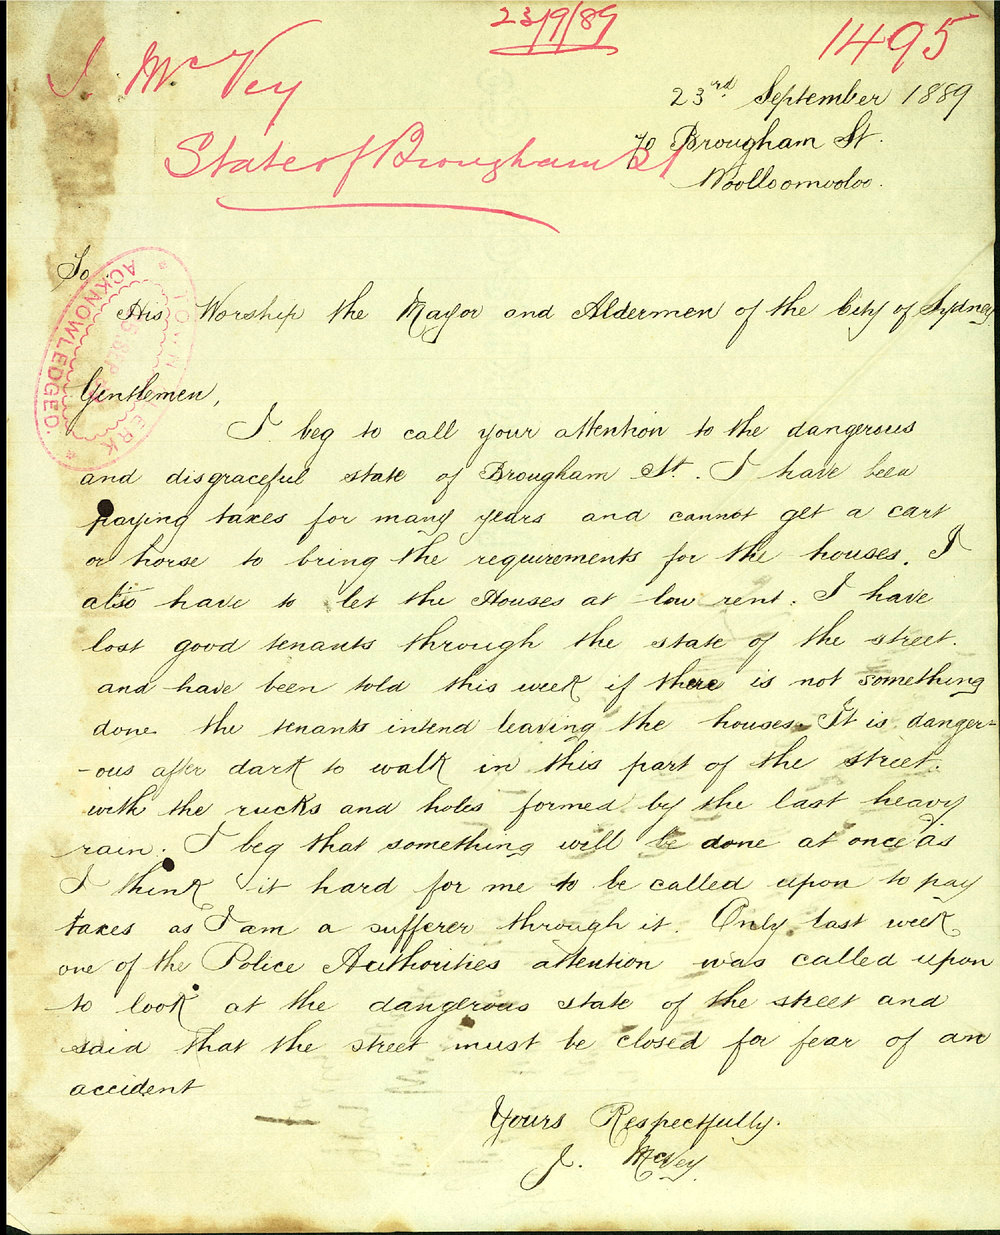 23/9/89
1495
J. McVey
State of Brougham St
23rd September 1889
70 Brougham St.
Woolloomooloo.
To
His Worship the Mayor and Aldermen of the City of Sydney
TOWN CLERK
25 SEP
ACKNOWLEDGED.
Gentlemen,
I beg to call your attention to the dangerous
and disgraceful state of Brougham St. I have been
paying taxes for many years and cannot get a cart
or horse to bring the requirements for the houses. I
also have to let the Houses at low rent. I have
lost good tenants through the state of the street.
and have been told this week if there is not something
done the tenants intend leaving the houses. It is danger=
-ous after dark to walk in this part of the street.
with the rucks and holes formed by the last heavy
rain. I beg that something will be done at once as
I think it hard for me to be called upon to pay
taxes as I am a sufferer through it. Only last week
one of the Police Authorities attention was called upon
to look at the dangerous state of the street and
said that the street must be closed for fear of an
accident
Yours Respectfully.
J. McVey.